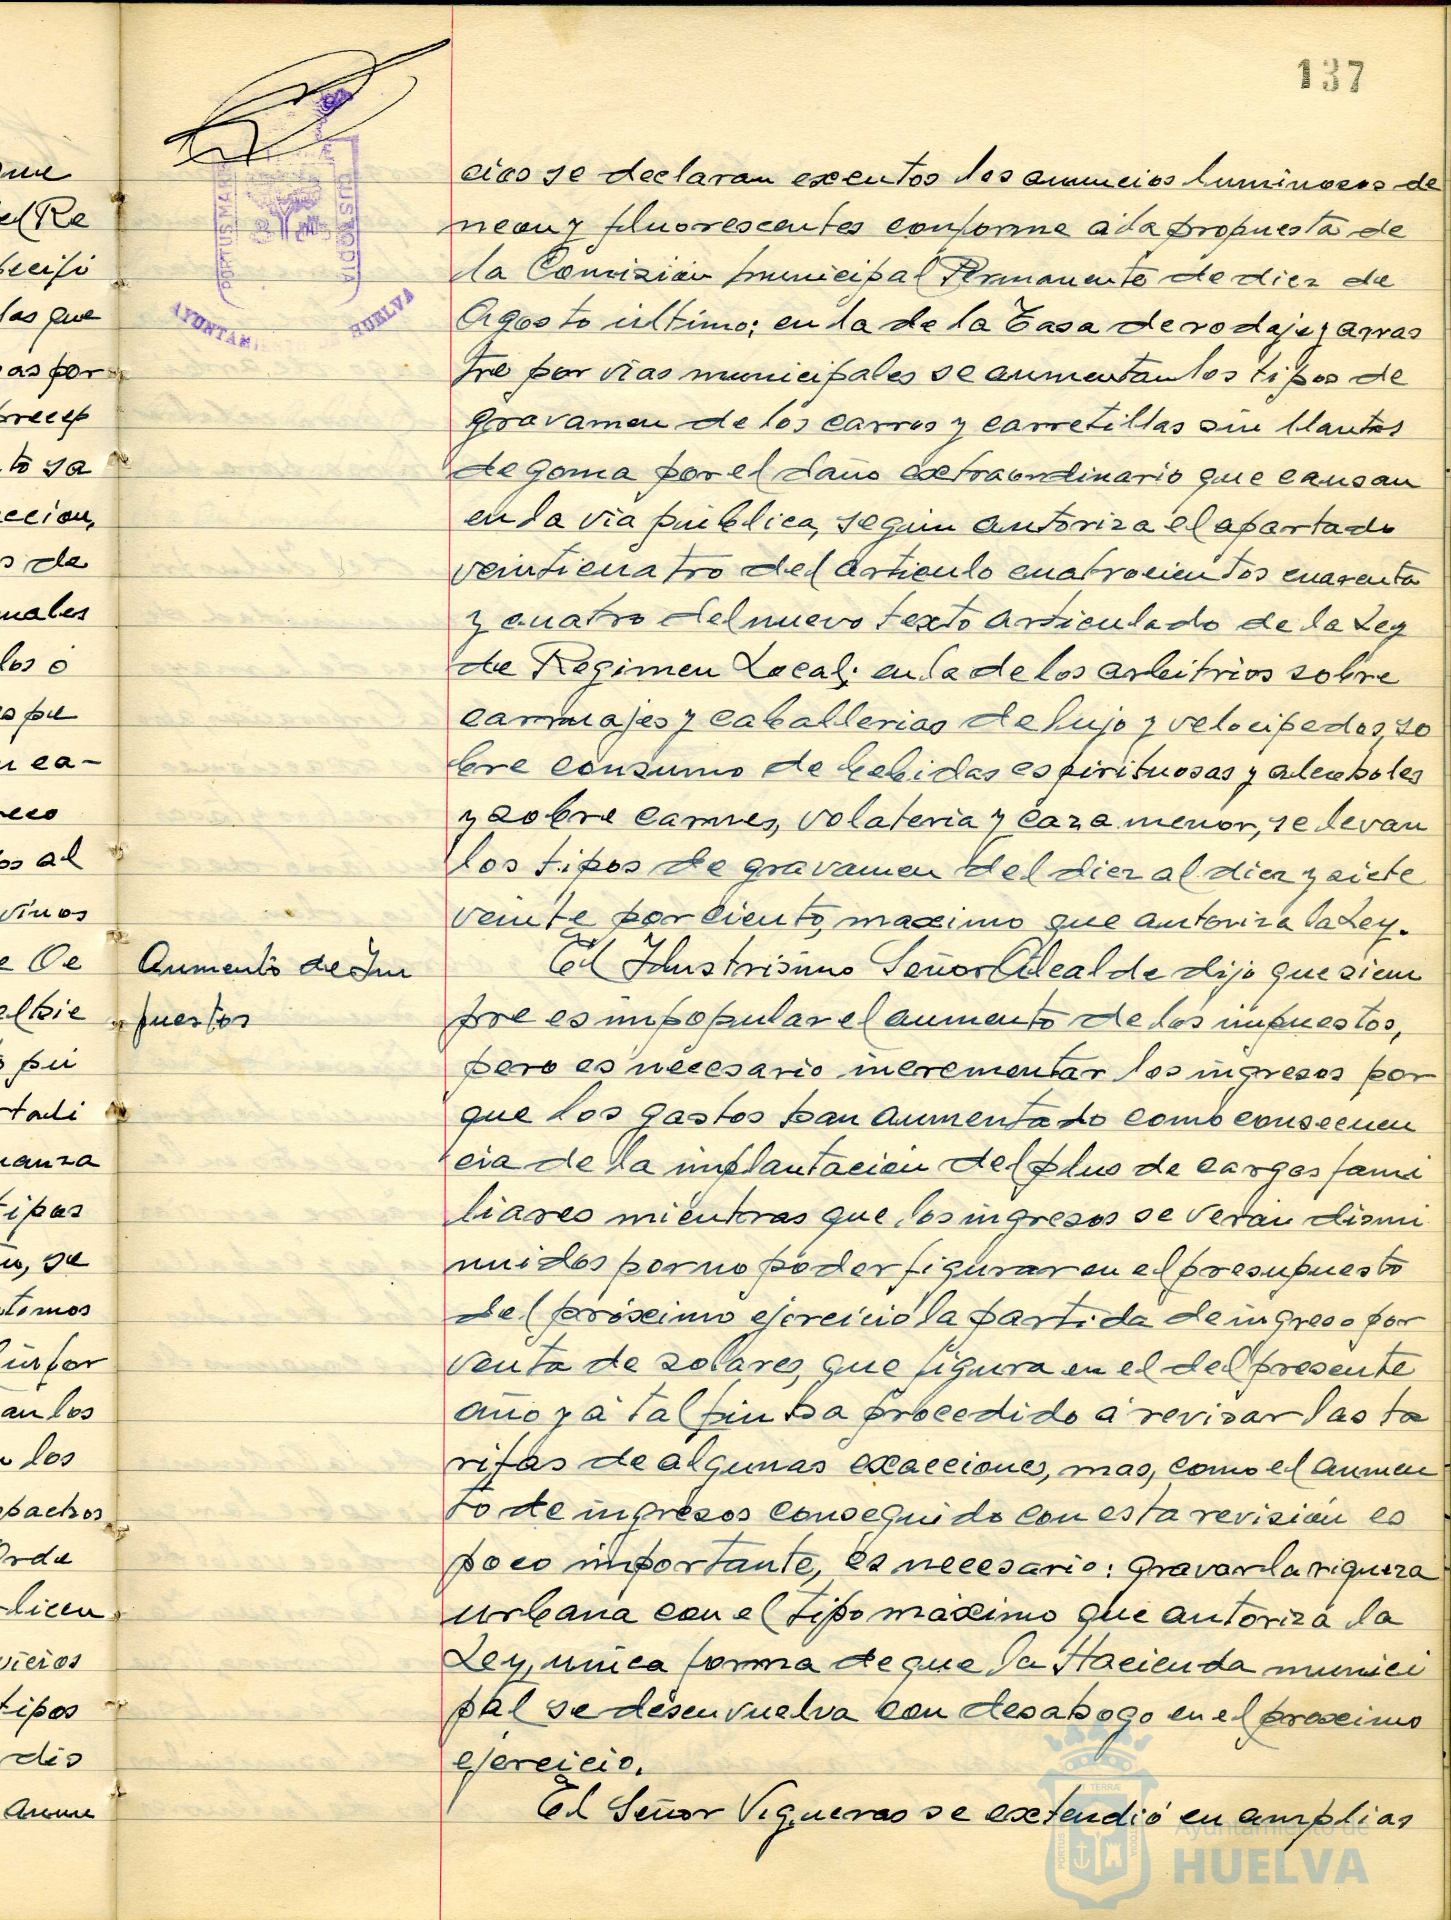 137
PORTUS MARIS
CUSTODIA
AYUNTAMIENTO DE HUELVA
cias se declaran exentos los anuncios luminosos de
neon y fluorescentes conforme á la propuesta de
la Comisión municipal Permanente de diez de
Agosto último; en la de la Tasa de rodaje y arras
tre por vias municipales se aumentan los tipos de
gravamen de los carros y carretillas sin llantas
de goma por el daño extraordinario que causan
en la via pública, según autoriza el apartado
veinticuatro del artículo cuatrocientos cuarenta
y cuatro del nuevo texto articulado de la Ley
de Regimen Local; en la de los arbitrios sobre
carruajes y caballerias de lujo y velocipedos, so
bre consumo de bebidas espirituosas y alcoholes
y sobre carnes, volateria y caza menor, se elevan
los tipos de gravamen del diez al diez y siete
veinte por ciento, maximo que autoriza la Ley.
Aumento de Im
puestos
El Ilustrisimo Señor Alcalde dijo que siem
pre es impopular el aumento de los impuestos,
pero es necesario incrementar los ingresos por
que los gastos han aumentado como consecuen
cia de la implantación del plus de cargas fami
liares mientras que los ingresos se verán dismi
nuidos por no poder figurar en el presupuesto
del próximo ejercicio la partida de ingreso por
venta de solares, que figura en el del presente
año y á tal fin ha procedido á revisar las ta
rifas de algunas exacciones, mas, como el aumen
to de ingresos conseguido con esta revisión es
poco importante, es necesario: gravar la riqueza
urbana con el tipo máximo que autoriza la
Ley, unica forma de que la Hacienda munici
pal se desenvuelva con desahogo en el proximo
ejercicio.
El Señor Vigueras se extendió en amplias
Ayuntamiento de
HUELVA
que
el Re
pecifi
las que
as por
precep
to sa
ccion,
s de
nales
los ó
n ca-
os al
vinos
e De
s pú
anza
tipos
los
licen
vicios
tipos
dis